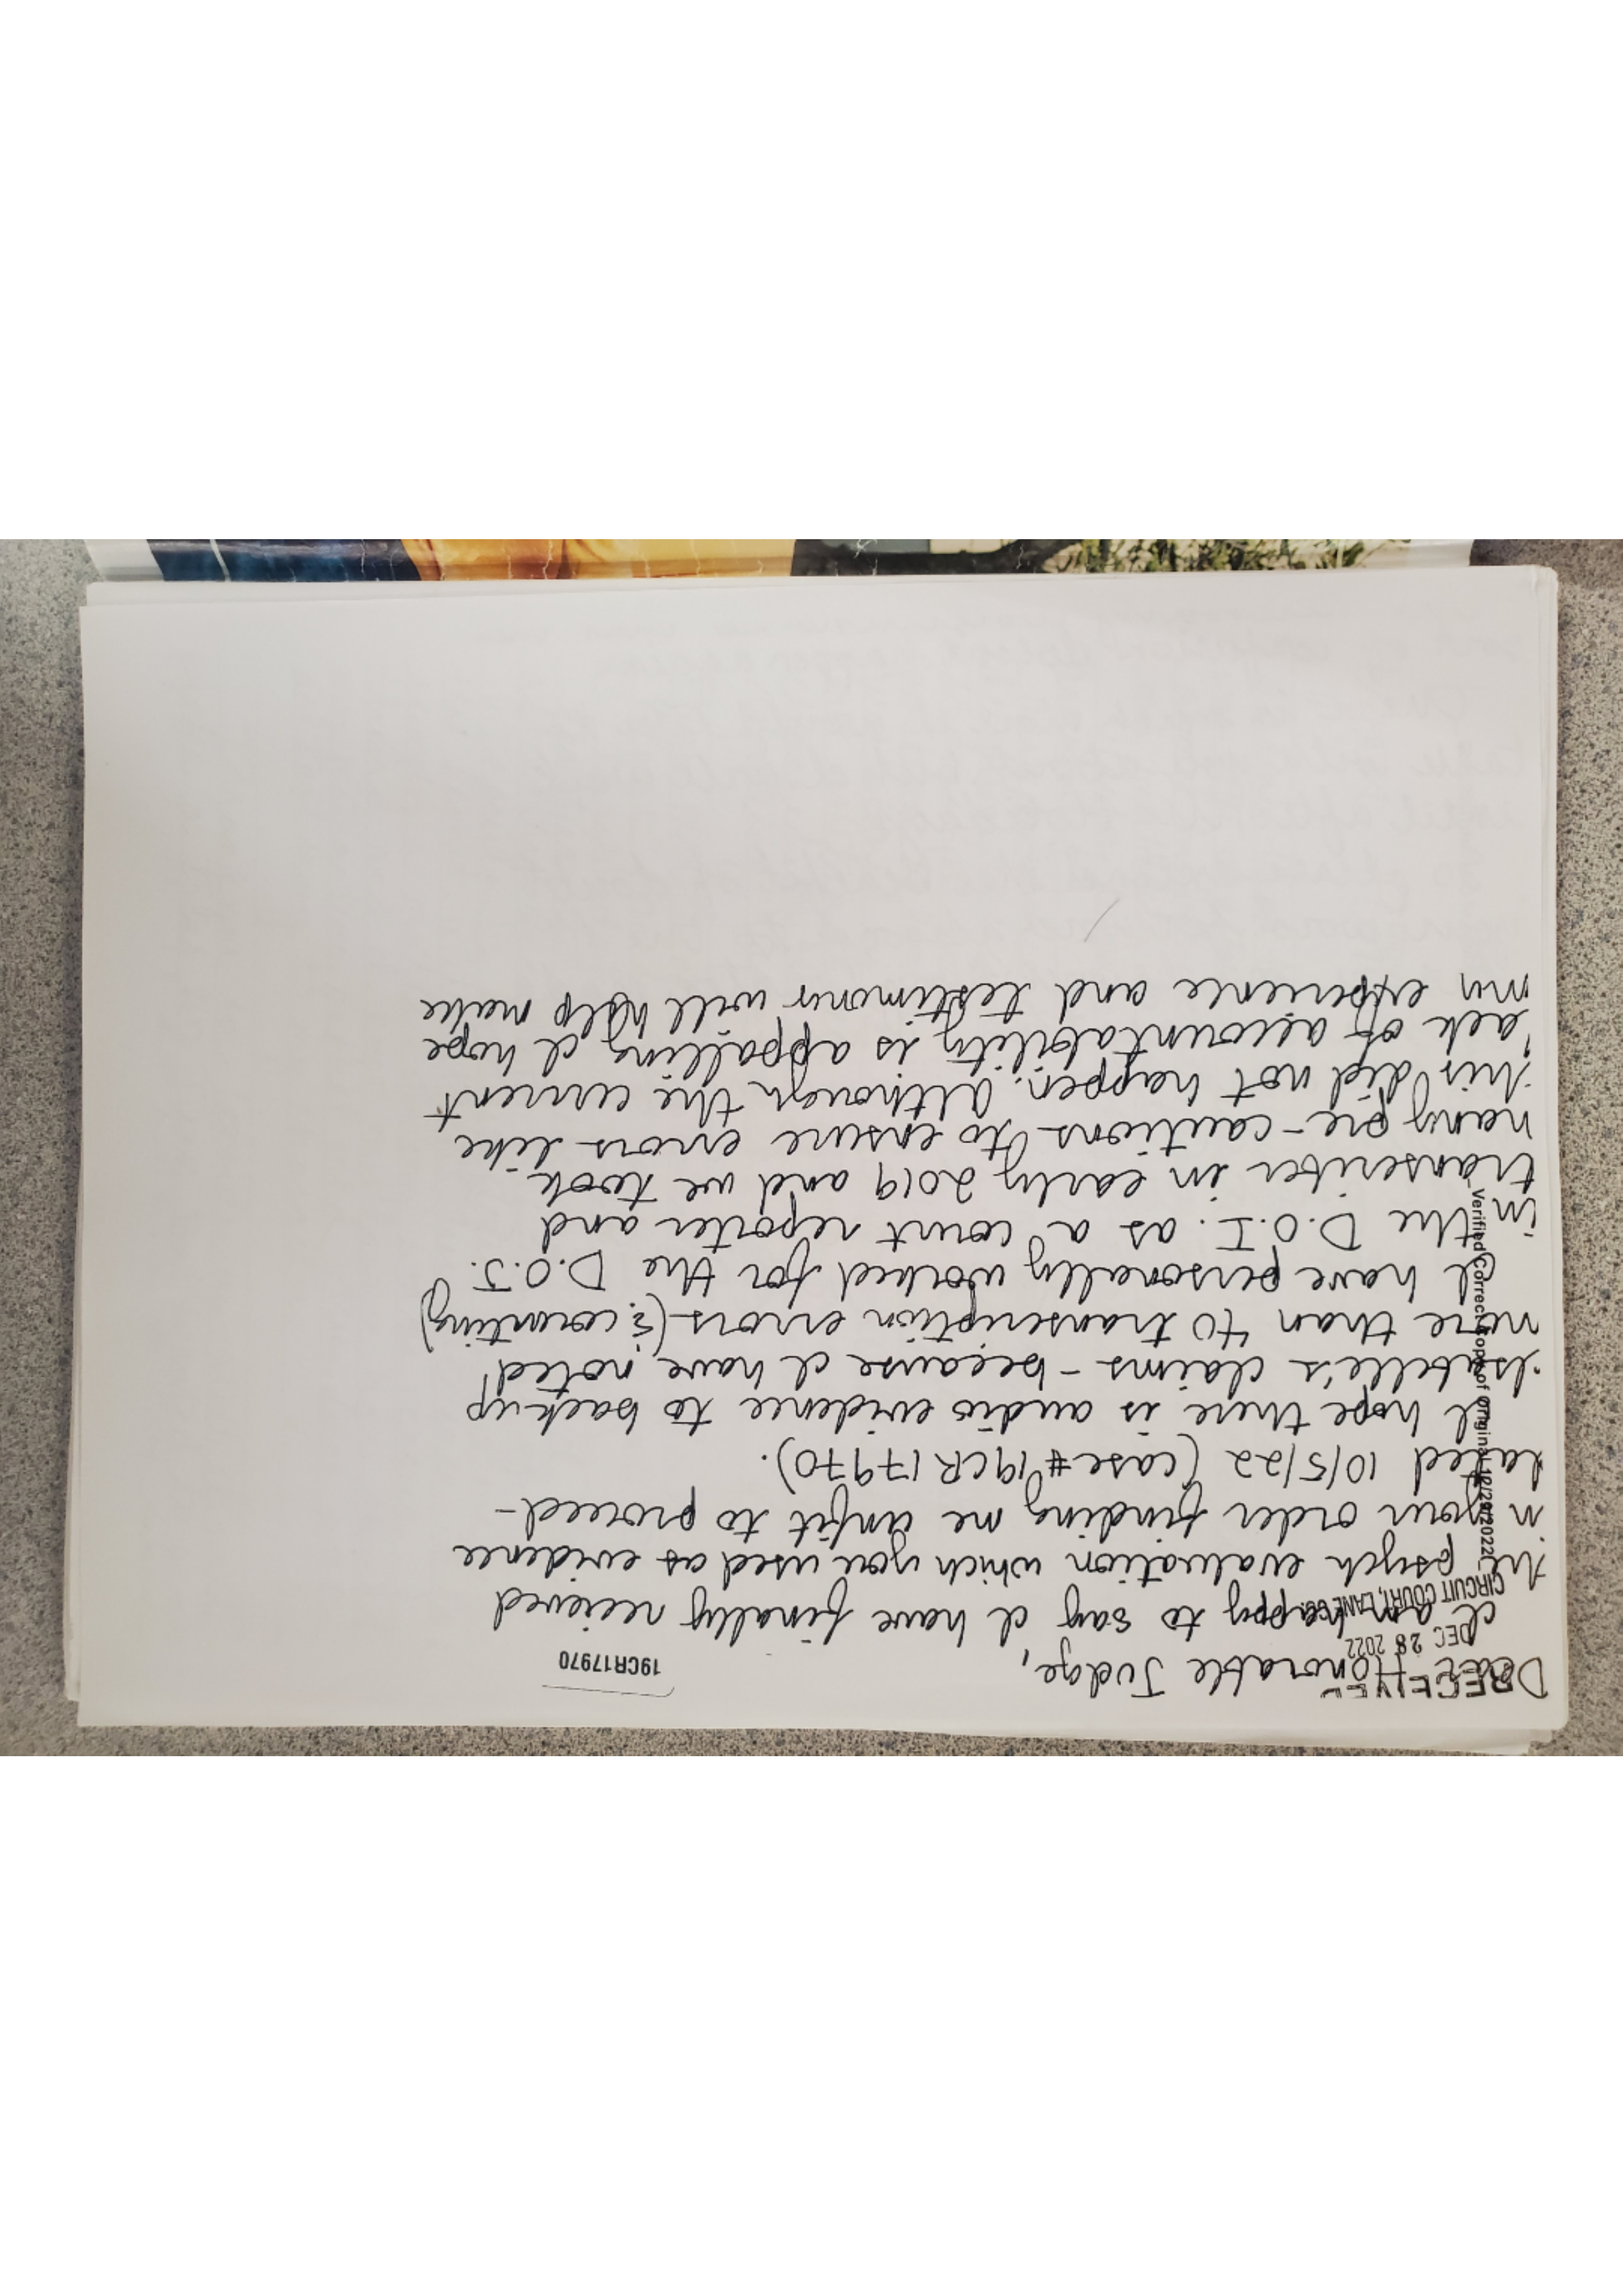 19CR17970
RECEIVED
DEC 28 2022
CIRCUIT COURT, LANE CO.
Verified Correct Copy of Original 12/29/2022
Dear Honorable Judge,
I am happy to say I have finally recieved
the psych evaluation which you used as evidence
in your order finding me unfit to proceed-
dated 10/5/22 (case #19CR17970).
I hope there is audio evidence to back up
Isabelle's claims - because I have noted
more than 40 transcription errors (& counting)
I have personally worked for the D.O.J.
in the D.O.I. as a court reporter and
transcriber in early 2019 and we took
many pre-cautions to ensure errors like
this did not happen. Although the current
lack of accountability is appalling I hope
my experience and testimony will help make